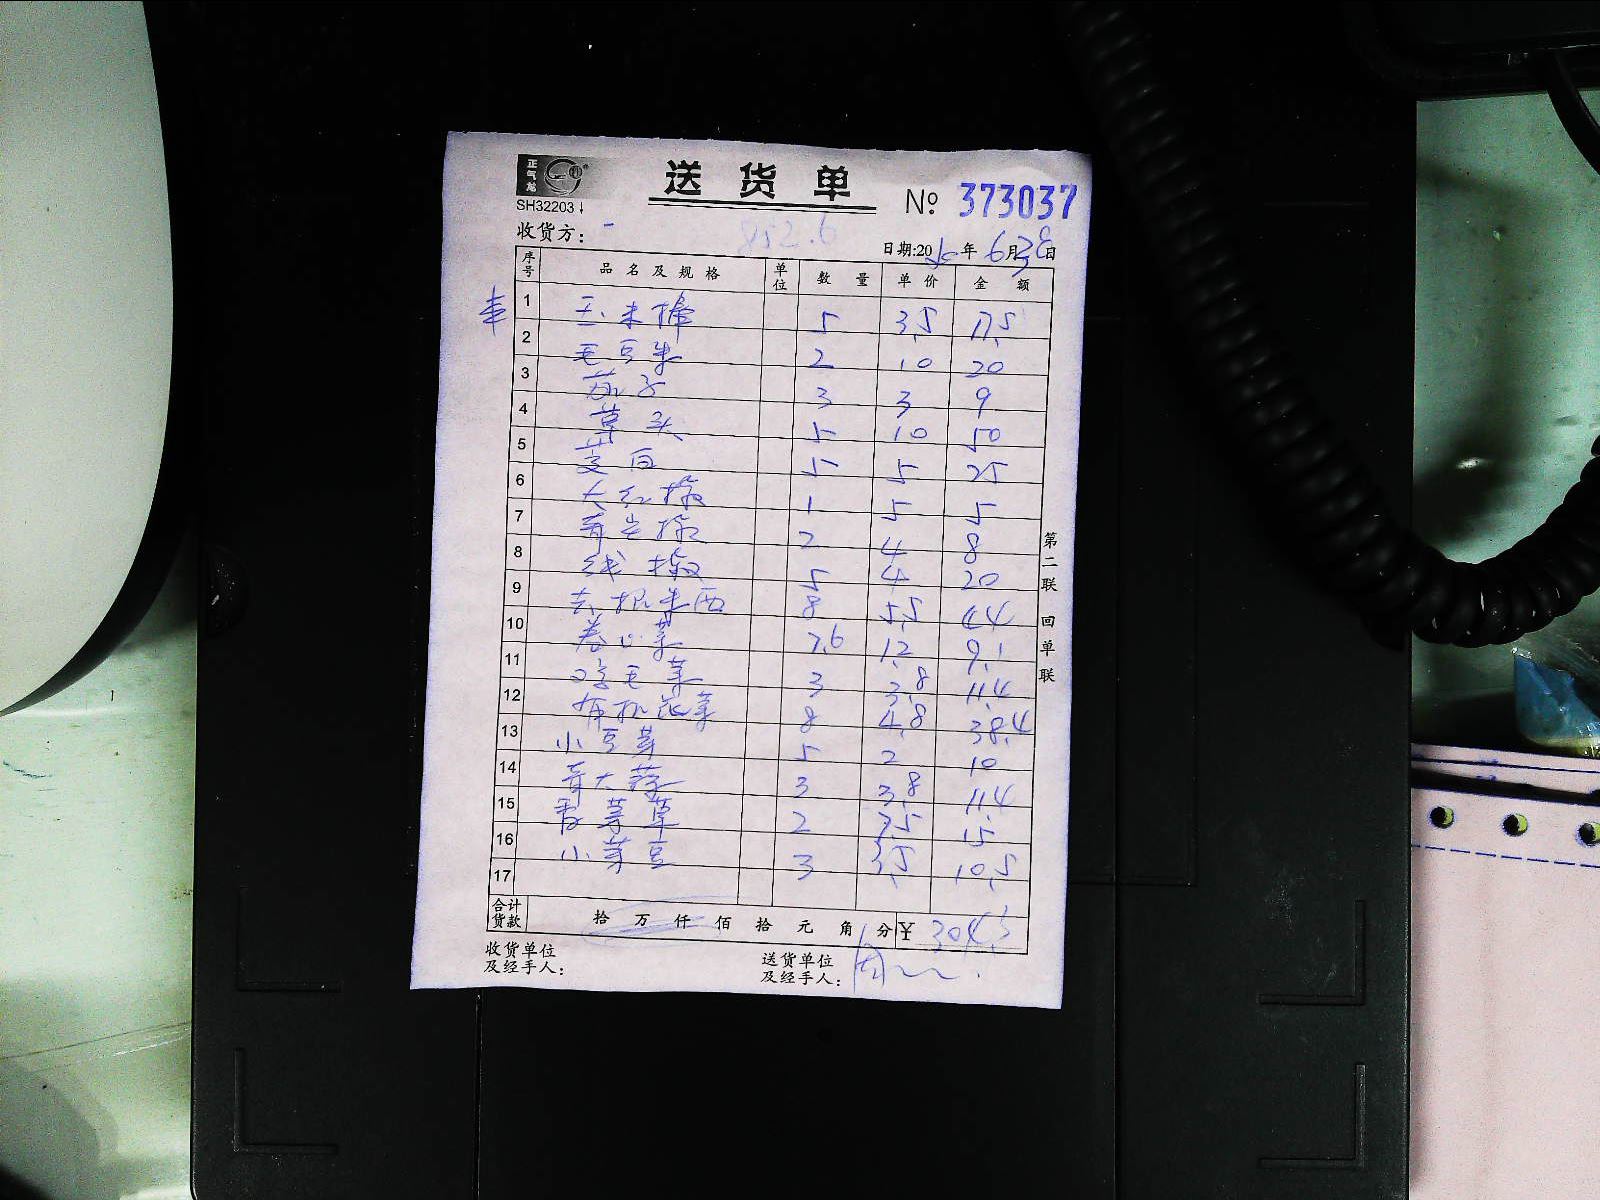 正气龙
送货单
№ 373037
SH32203
收货方：
852.6
日期:20 年 6月28日
序号 品名及规格 单位 数量 单价 金额
1 玉米棒 5 3.5 17.5
2 毛豆米 2 10 20
3 茄子 3 3 9
4 草头 5 10 50
5 茭白 5 5 25
6 大红椒 1 5 5
7 青尖椒 2 4 8
8 线椒 5 4 20
9 8 5.5 44
10 卷心菜 7.6 1.2 9.1
11 鸡毛菜 3 3.8 11.4
12 有机花菜 8 4.8 38.4
13 小豆芽 5 2 10
14 青大蒜 3 3.8 11.4
15 香芽草 2 7.5 15
16 小芽豆 3 3.5 10.5
17
合计货款 拾 万 仟 佰 拾 元 角 分 ￥ 304.3
收货单位及经手人：
送货单位及经手人：
第二联 回单联